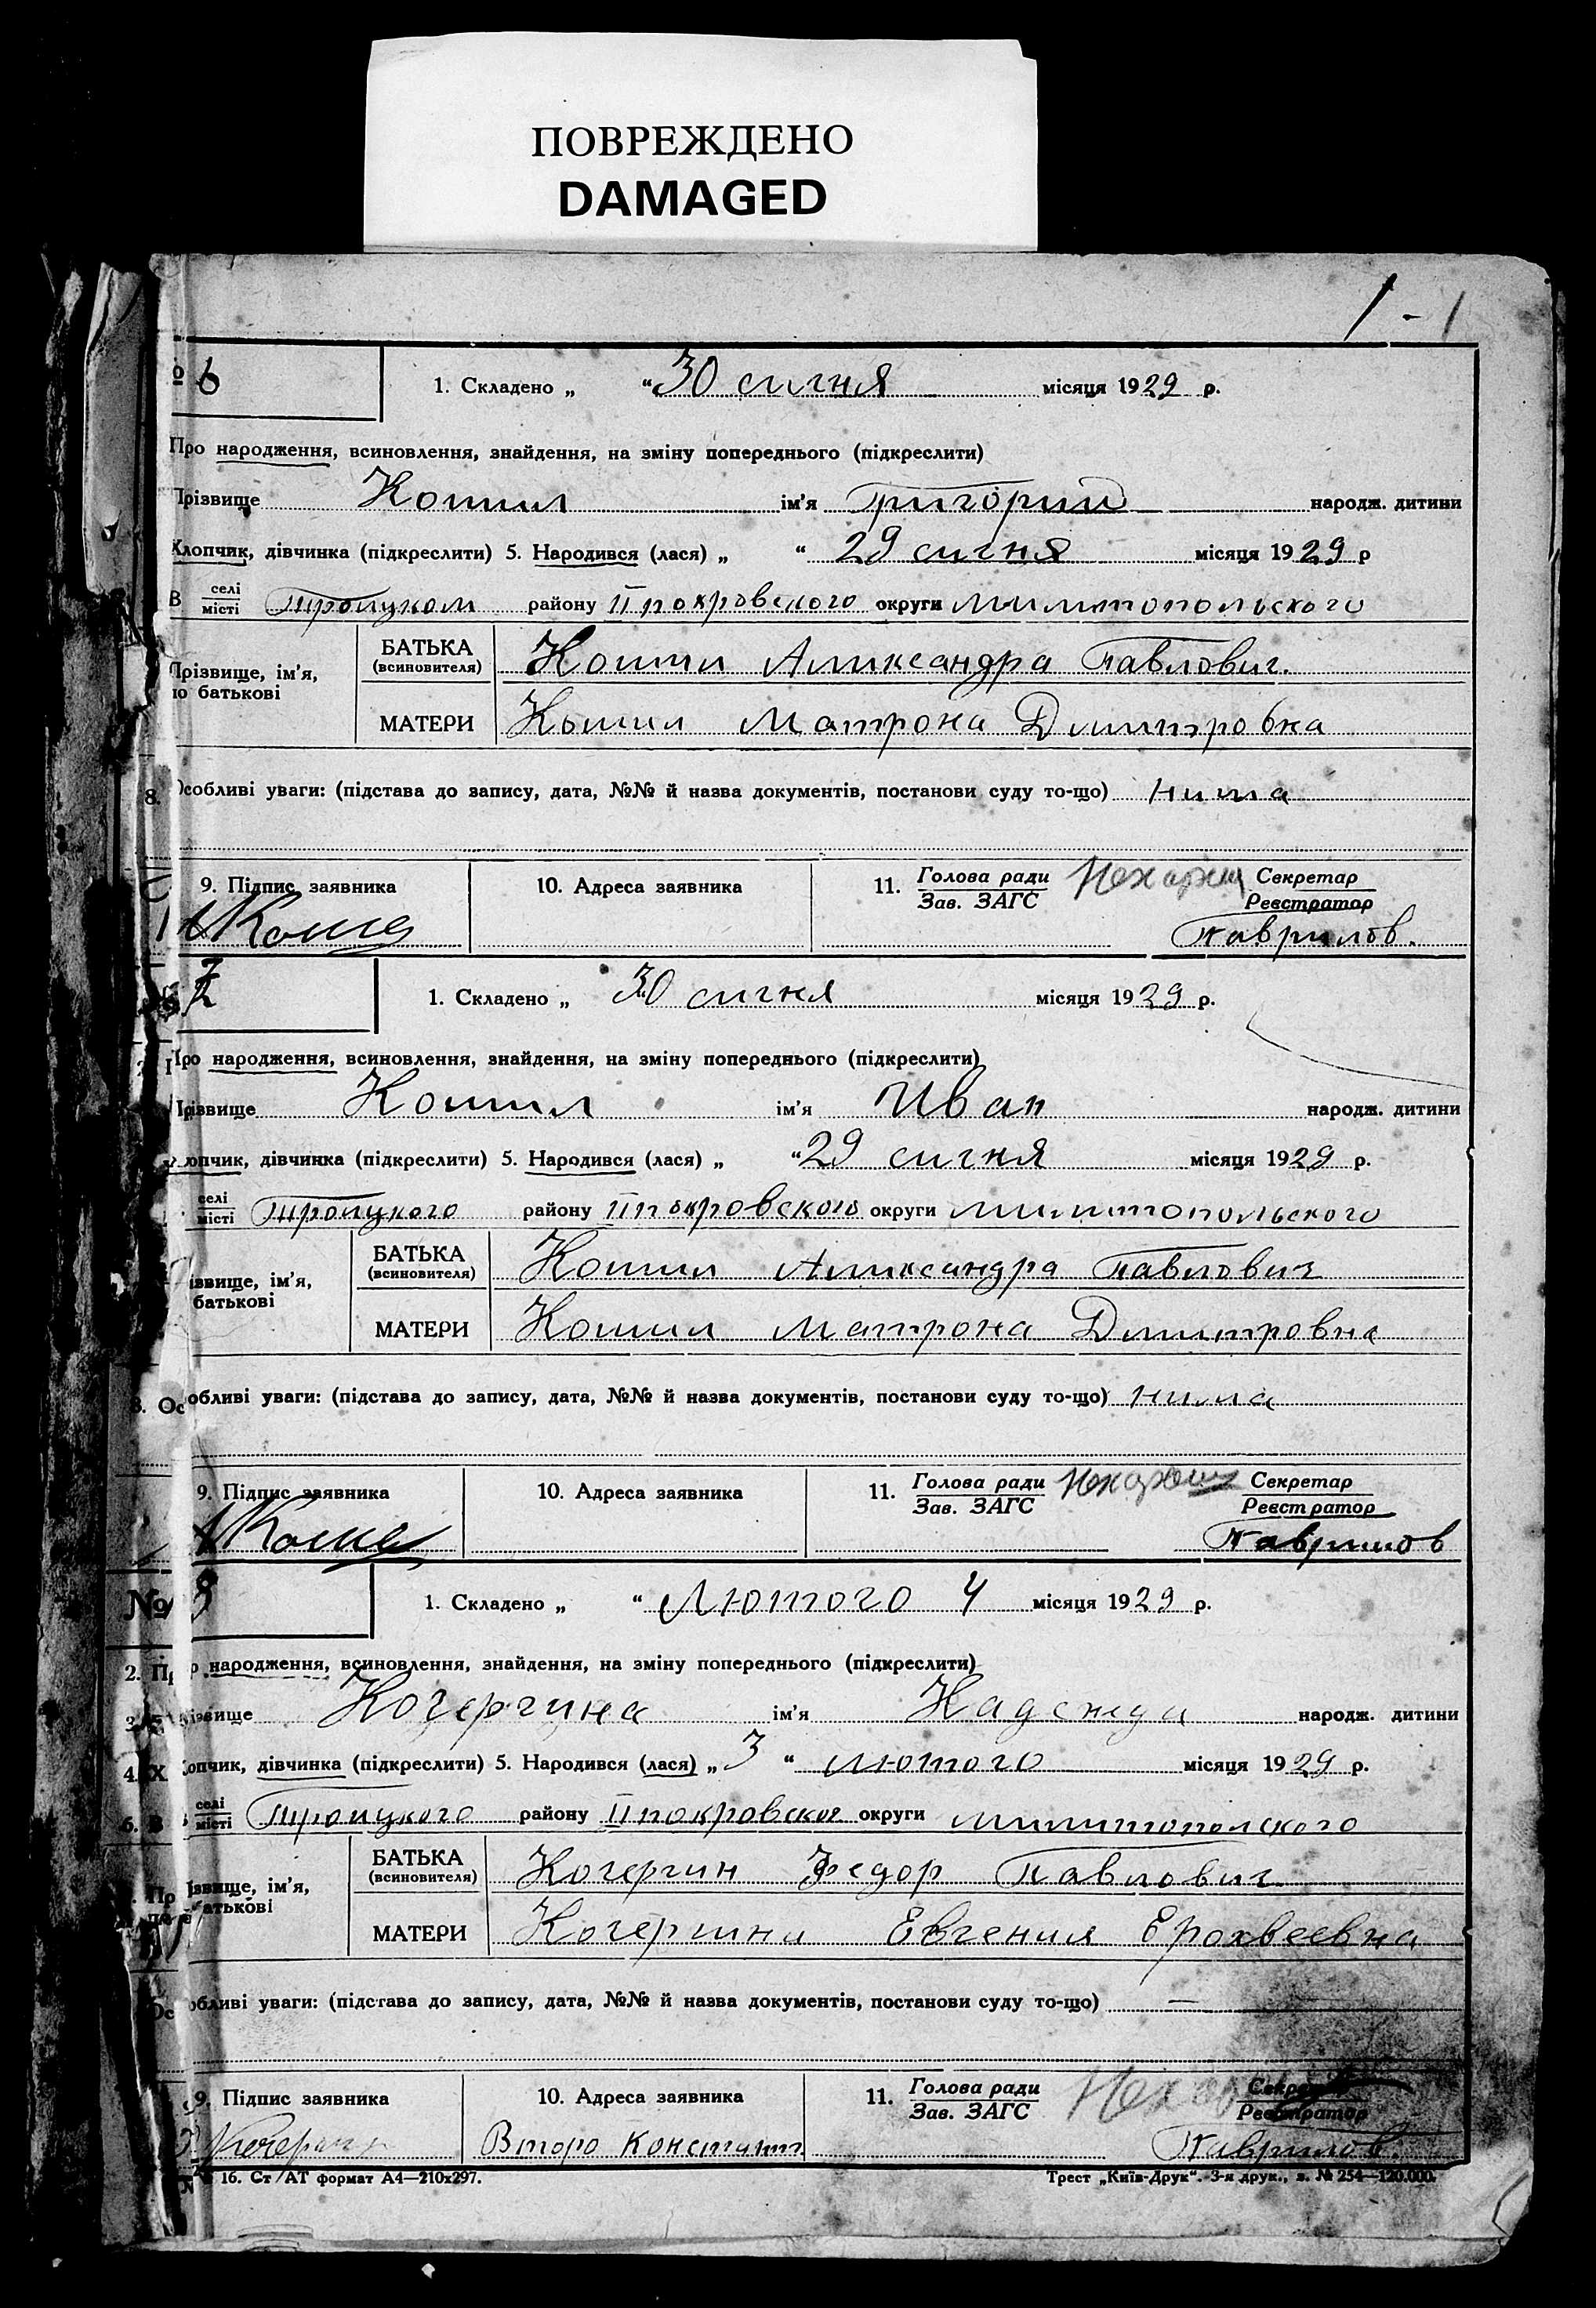 ПОВРЕЖДЕНО
DAMAGED
1 - 1
6
1. Складено „ “ 30 сигня місяця 1929 р.
Про народження, всиновлення, знайдення, на зміну попереднього (підкреслити)
Прізвище Кошил ім'я Григорий народж. дитини
Хлопчик, дівчинка (підкреслити) 5. Народився (лася) „ “ 29 сигня місяця 1929 р
В селі місті Троицком району Ппокровского округи Милитопольского
Прізвище, ім'я, по батькові
БАТЬКА (всиновителя) Кошил Аликсандра Павлович.
МАТЕРИ Кошил Матрона Димитровка
8. Особливі уваги: (підстава до запису, дата, №№ й назва документів, постанови суду то-що) нима
9. Підпис заявника 10. Адреса заявника 11. Голова ради Зав. ЗАГС Секретар Реєстратор
Гаврилов.
7
1. Складено „ 30 сигня місяця 1929 р.
Про народження, всиновлення, знайдення, на зміну попереднього (підкреслити)
Прізвище Кошил ім'я Иван народж. дитини
лопчик, дівчинка (підкреслити) 5. Народився (лася) „ “ 29 сигня місяця 1929 р.
селі місті Троицкого району Ппокровского округи Милитопольского
ізвище, ім'я, батькові
БАТЬКА (всиновителя) Кошил Аликсандра Павлович
МАТЕРИ Кошил Матрона Димитровна
8. Особливі уваги: (підстава до запису, дата, №№ й назва документів, постанови суду то-що) нима
9. Підпис заявника 10. Адреса заявника 11. Голова ради Зав. ЗАГС Секретар Реєстратор
Гаврилов
№ 8
1. Складено „ “ Лютого 4 місяця 1929 р.
2. Пр народження, всиновлення, знайдення, на зміну попереднього (підкреслити)
3. ізвище Кочергина ім'я Надежда народж. дитини
4. Х опчик, дівчинка (підкреслити) 5. Народився (лася) „ 3 “ лютого місяця 1929 р.
6. В селі місті Троицкого району Ппокровског округи Милитополского
Пр ізвище, ім'я, батькові
БАТЬКА (всиновителя) Кочергин Федор Павлович
МАТЕРИ Кочергина Евгения Ерохвеевна
Особливі уваги: (підстава до запису, дата, №№ й назва документів, постанови суду то-що) —
9. Підпис заявника 10. Адреса заявника 11. Голова ради Зав. ЗАГС Секретар Реєстратор
Второ Констант Гаврилов.
16. Ст/АТ формат А4—210х297. Трест „Київ-Друк“. 3-я друк., з. № 254—120.000.